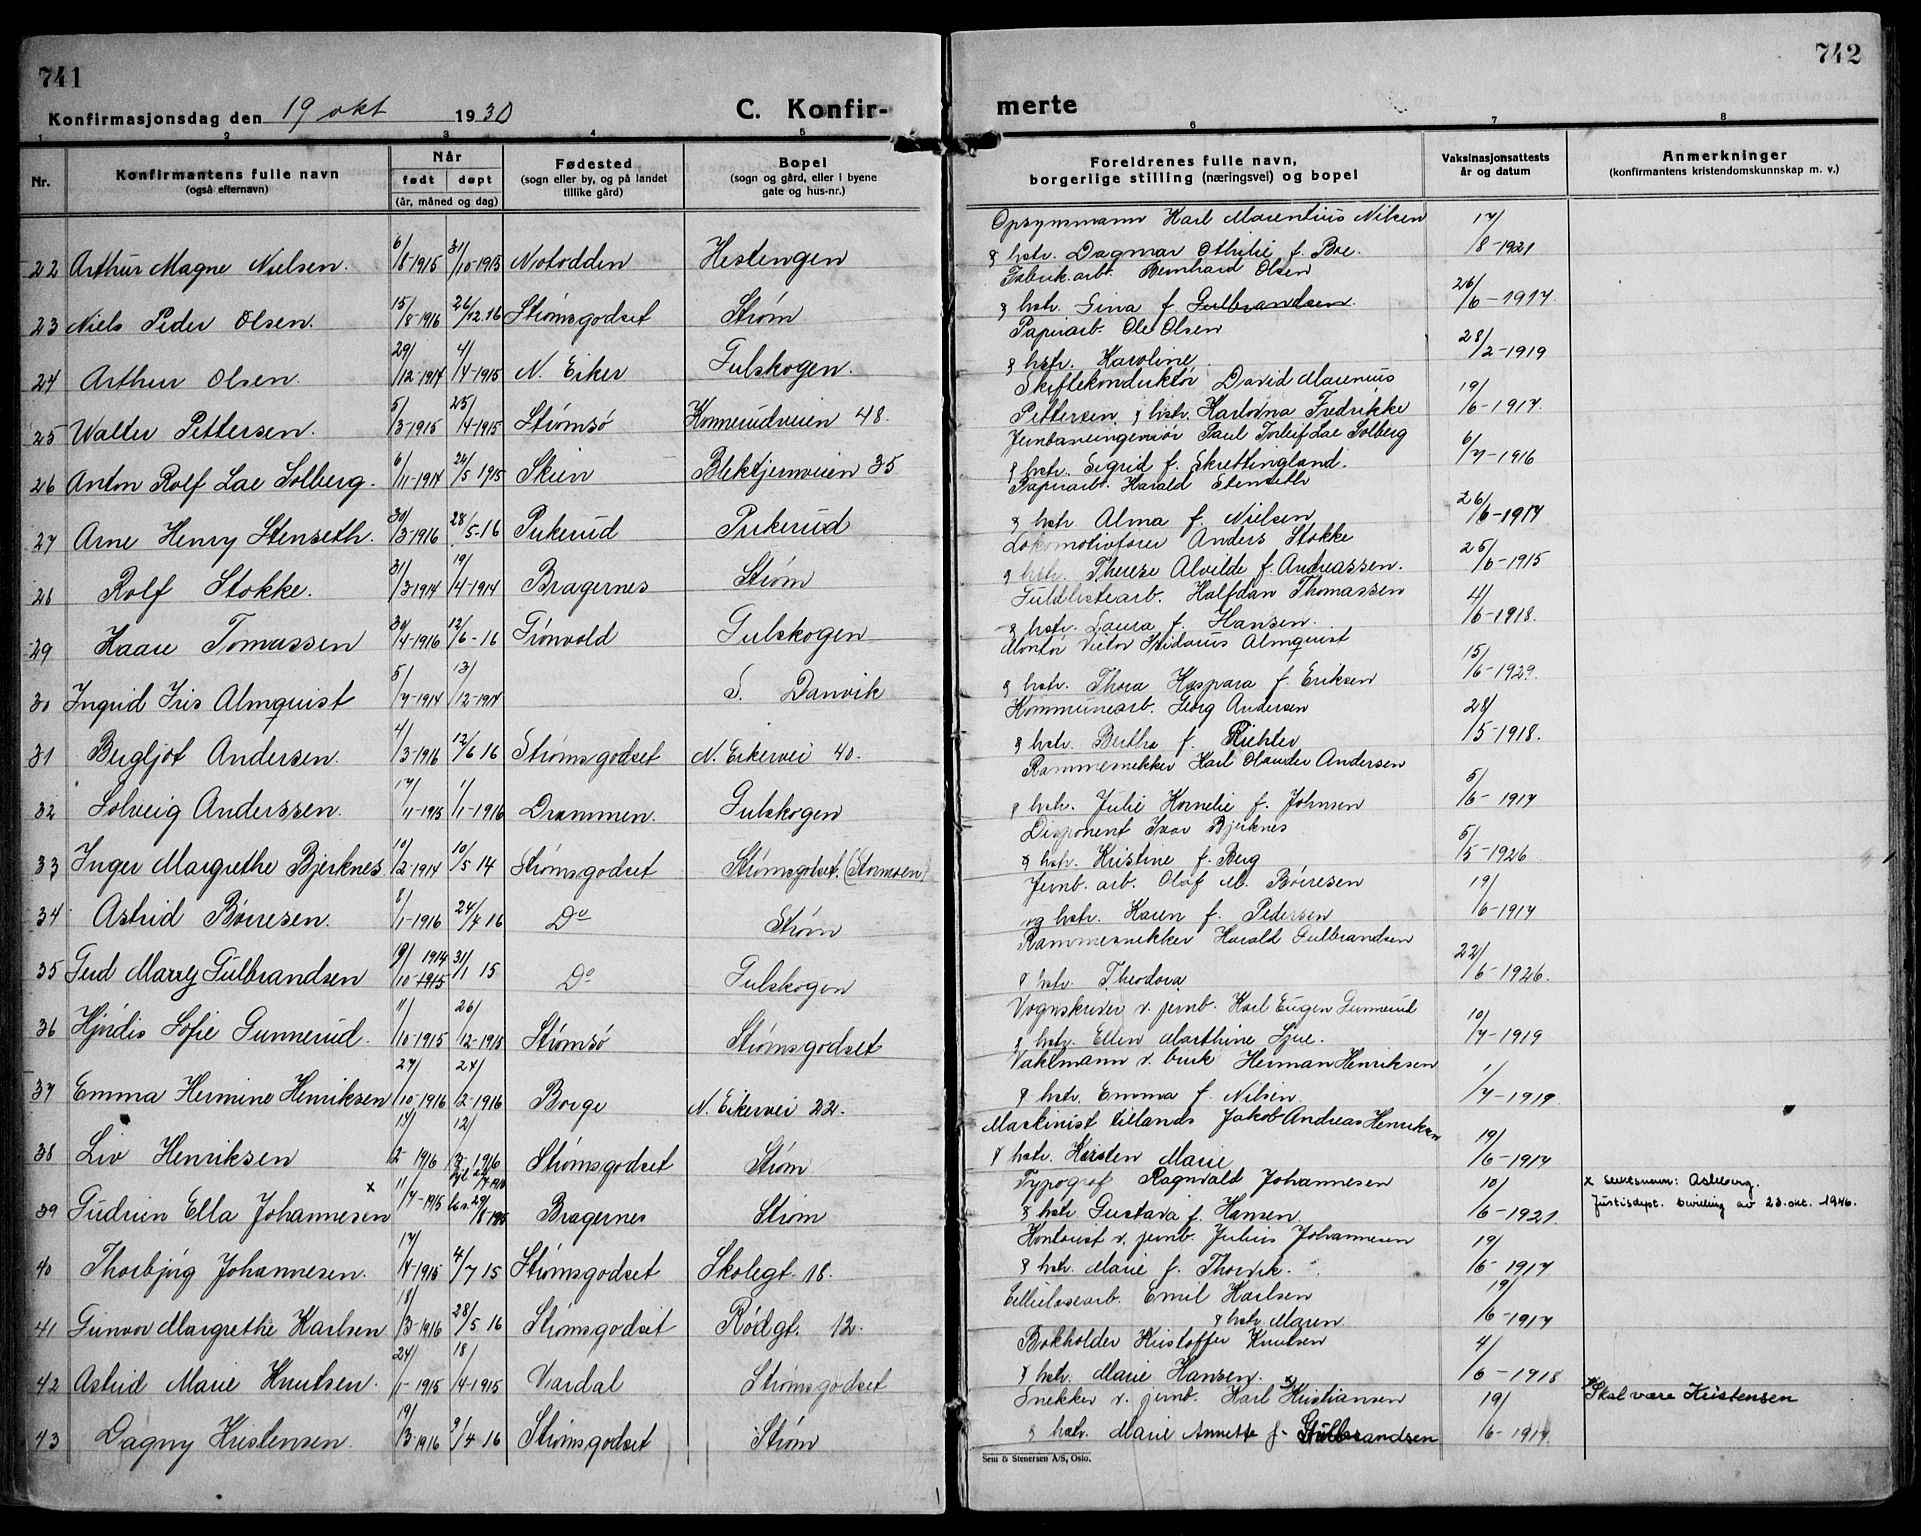 741
742
Konfirmasjonsdag den 19 okt 1930
C. Konfir-
merte
1 2 3 4 5 6 7 8
Nr.
Konfirmantens fulle navn
(også efternavn)
Når
født døpt
(år, måned og dag)
Fødested
(sogn eller by, og på landet
tillike gård)
Bopel
(sogn og gård, eller i byene
gate og hus-nr.)
Foreldrenes fulle navn,
borgerlige stilling (næringsvei) og bopel
Vaksinasjonsattests
år og datum
Anmerkninger
(konfirmantens kristendomskunnskap m. v.)
Opsynsmann Karl Marentius Nilsen
22 Arthur Magne Nielsen. 6/8-1915 31/10-1915 Notodden Hestengen & hstr. Dagmar Othilie f. Boe. 17/8-1921
Fabrik.arb. Bernhard Olsen
23 Niels Peder Olsen. 15/8-1916 26/12.16 Strømsgodset Strøm & hstr. Lina f. Gulbrandsen. 26/6-1917.
Papirarb. Ole Olsen
24 Arthur Olsen. 29/12-1914 4/4-1915 N. Eiker Gulskogen. & hstr. Karoline. 28/2-1919
Skiftekonduktør David Marenius
25 Walter Pettersen. 5/3-1915 25/4-1915 Strømsø Konnerudveien 48. Pettersen. & hstr. Karlovna Fredrikke 19/6-1917.
Jernbaneingeniør Paul Torleif Lae Solberg
26 Anton Rolf Lae Solberg. 6/11-1914 24/5 1915 Skien Blektjernveien 35 & hstr. Sigrid f. Skrettingland. 6/7-1916
Papirarb. Harald Stenseth
27 Arne Henry Stenseth. 30/3-1916 28/5-16 Pukerud Pukerud & hstr Alma f. Nielsen 26/6-1917
Lokomotivfører Anders Stokke
28 Rolf Stokke. 31/3-1914 19/4-1914 Bragernes Strøm & hstr. Therese Alvilde f. Andreassen. 25/6-1915
Guldlistearb. Halfdan Thomassen
29 Kaare Tomassen 30/4-1916 12/6-16 Grønvold Gulskogen & hstr. Laura f. Hansen. 4/6-1918.
Montør Victor Almquist
30 Ingrid Iris Almquist 5/7-1914 13/12-1914 S. Danvik & hstr. Thora Kaspara f. Eriksen 15/6-1929.
Kommunearb. Georg Andersen
31 Bergljot Andersen. 4/3-1916 12/6 16 Strømsgodset N. Eikervei 40. & hstr. Bertha f. Richter 28/5-1918.
Rammesnekker Karl Olander Andersen
32 Solveig Anderssen. 17/11-1915 1/1-1916 Drammen. Gulskogen & hstr. Julie Kornelie f. Johnsen 5/6-1917
Disponent Ivar Bjerknes
33 Inger Margrethe Bjerknes 10/2-1914 10/5 14 Strømsgodset Strømsgodset. (Stormoen) & hstr. Kristine f. Berg 5/5-1926
Jernb. arb. Olaf M. Børresen
34 Astrid Børresen. 8/1-1916 24/4 16 Do Strøm og hstr. Karen f. Pedersen 19/6-1917
Rammesnekker Harald Gulbrandsen
35 Gerd Marry Gulbrandsen 9/10-1915 1914 31/1 15 Do Gulskogen & hstr. Theodora 22/6-1926.
Vognskriver v. jernb. Karl Eugen Gunnerud
36 Hjørdis Sofie Gunnerud. 11/10-1915 26/12-1915 Strømsø Strømsgodset & hstr. Ellen Marthine Lyse. 10/7-1919
Vaktmann v. bruk Herman Henriksen
37 Emma Hermine Henriksen 27/10-1916 24/2-1916 Borge N. Eikervei 22. & hstr. Emma f. Nilsen. 1/7-1919.
Maskinist tillands Jakob Andreas Henriksen
38 Liv Henriksen 13/2-1916 12/3-1916 Strømsgodset Strøm & hstr. Kirsten Marie 19/6-1917
Typograf Ragnvald Johannesen
39 Gudrun Ella Johannesen x 11/7-1915 Bragernes Strøm & hstr Gustava f. Hansen. 10/6-1921. x slektsnavn: Askeberg.
Justisdept. bevilling av 23. okt. 1946.
Kontorist v. jernb. Julius Johannesen
40 Thorbjørg Johannesen. 17/4-1915 4/7 15 Strømsgodset Skolegt. 18. & hstr. Marie f. Thorvik. 19/6-1917
Cellulosearb. Emil Karlsen
41 Gunvor Margrethe Karlsen 18/3-1916 28/5 16 Strømsgodset Rødgt. 12. & hstr. Maren. 19/6-1917
Bokholder Kristoffer Knutsen
42 Astrid Marie Knutsen. 24/1-1915 18/4-1915 Vardal Strømsgodset & hstr. Marie Hansen. 4/6-1918
Snekker v. jernb. Karl x Kristiansen x Skal være Kristensen
43 Dagny Kristensen. 19/3-1916 9/4 16 Strømsgodset Strøm & hstr. Marie Annette f. Gulbrandsen 19/6-1917.
Sem & Stenersen A/S, Oslo.